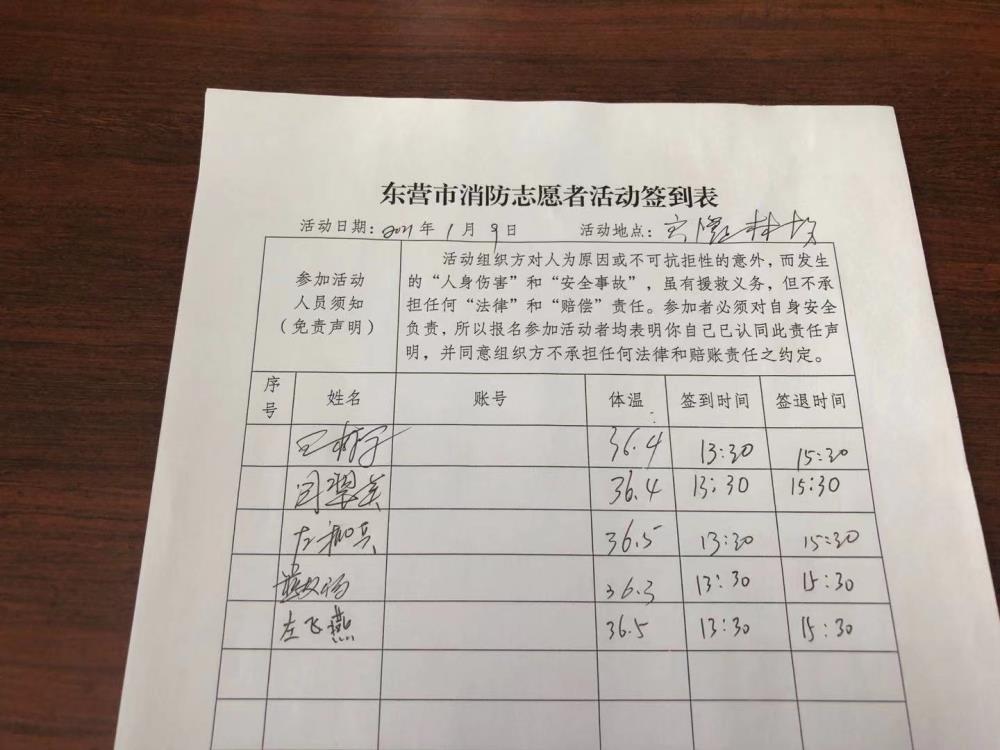 东营市消防志愿者活动签到表
活动日期：2021年1月9日 活动地点：林场
参加活动
人员须知
（免责声明）
活动组织方对人为原因或不可抗拒性的意外，而发生
的“人身伤害”和“安全事故”，虽有援救义务，但不承
担任何“法律”和“赔偿”责任。参加者必须对自身安全
负责，所以报名参加活动者均表明你自己已认同此责任声
明，并同意组织方不承担任何法律和赔账责任之约定。
序号 姓名 账号 体温 签到时间 签退时间
36.4 13:30 15:30
闫翠英 36.4 13:30 15:30
36.5 13:30 15:30
36.3 13:30 15:30
左飞燕 36.5 13:30 15:30